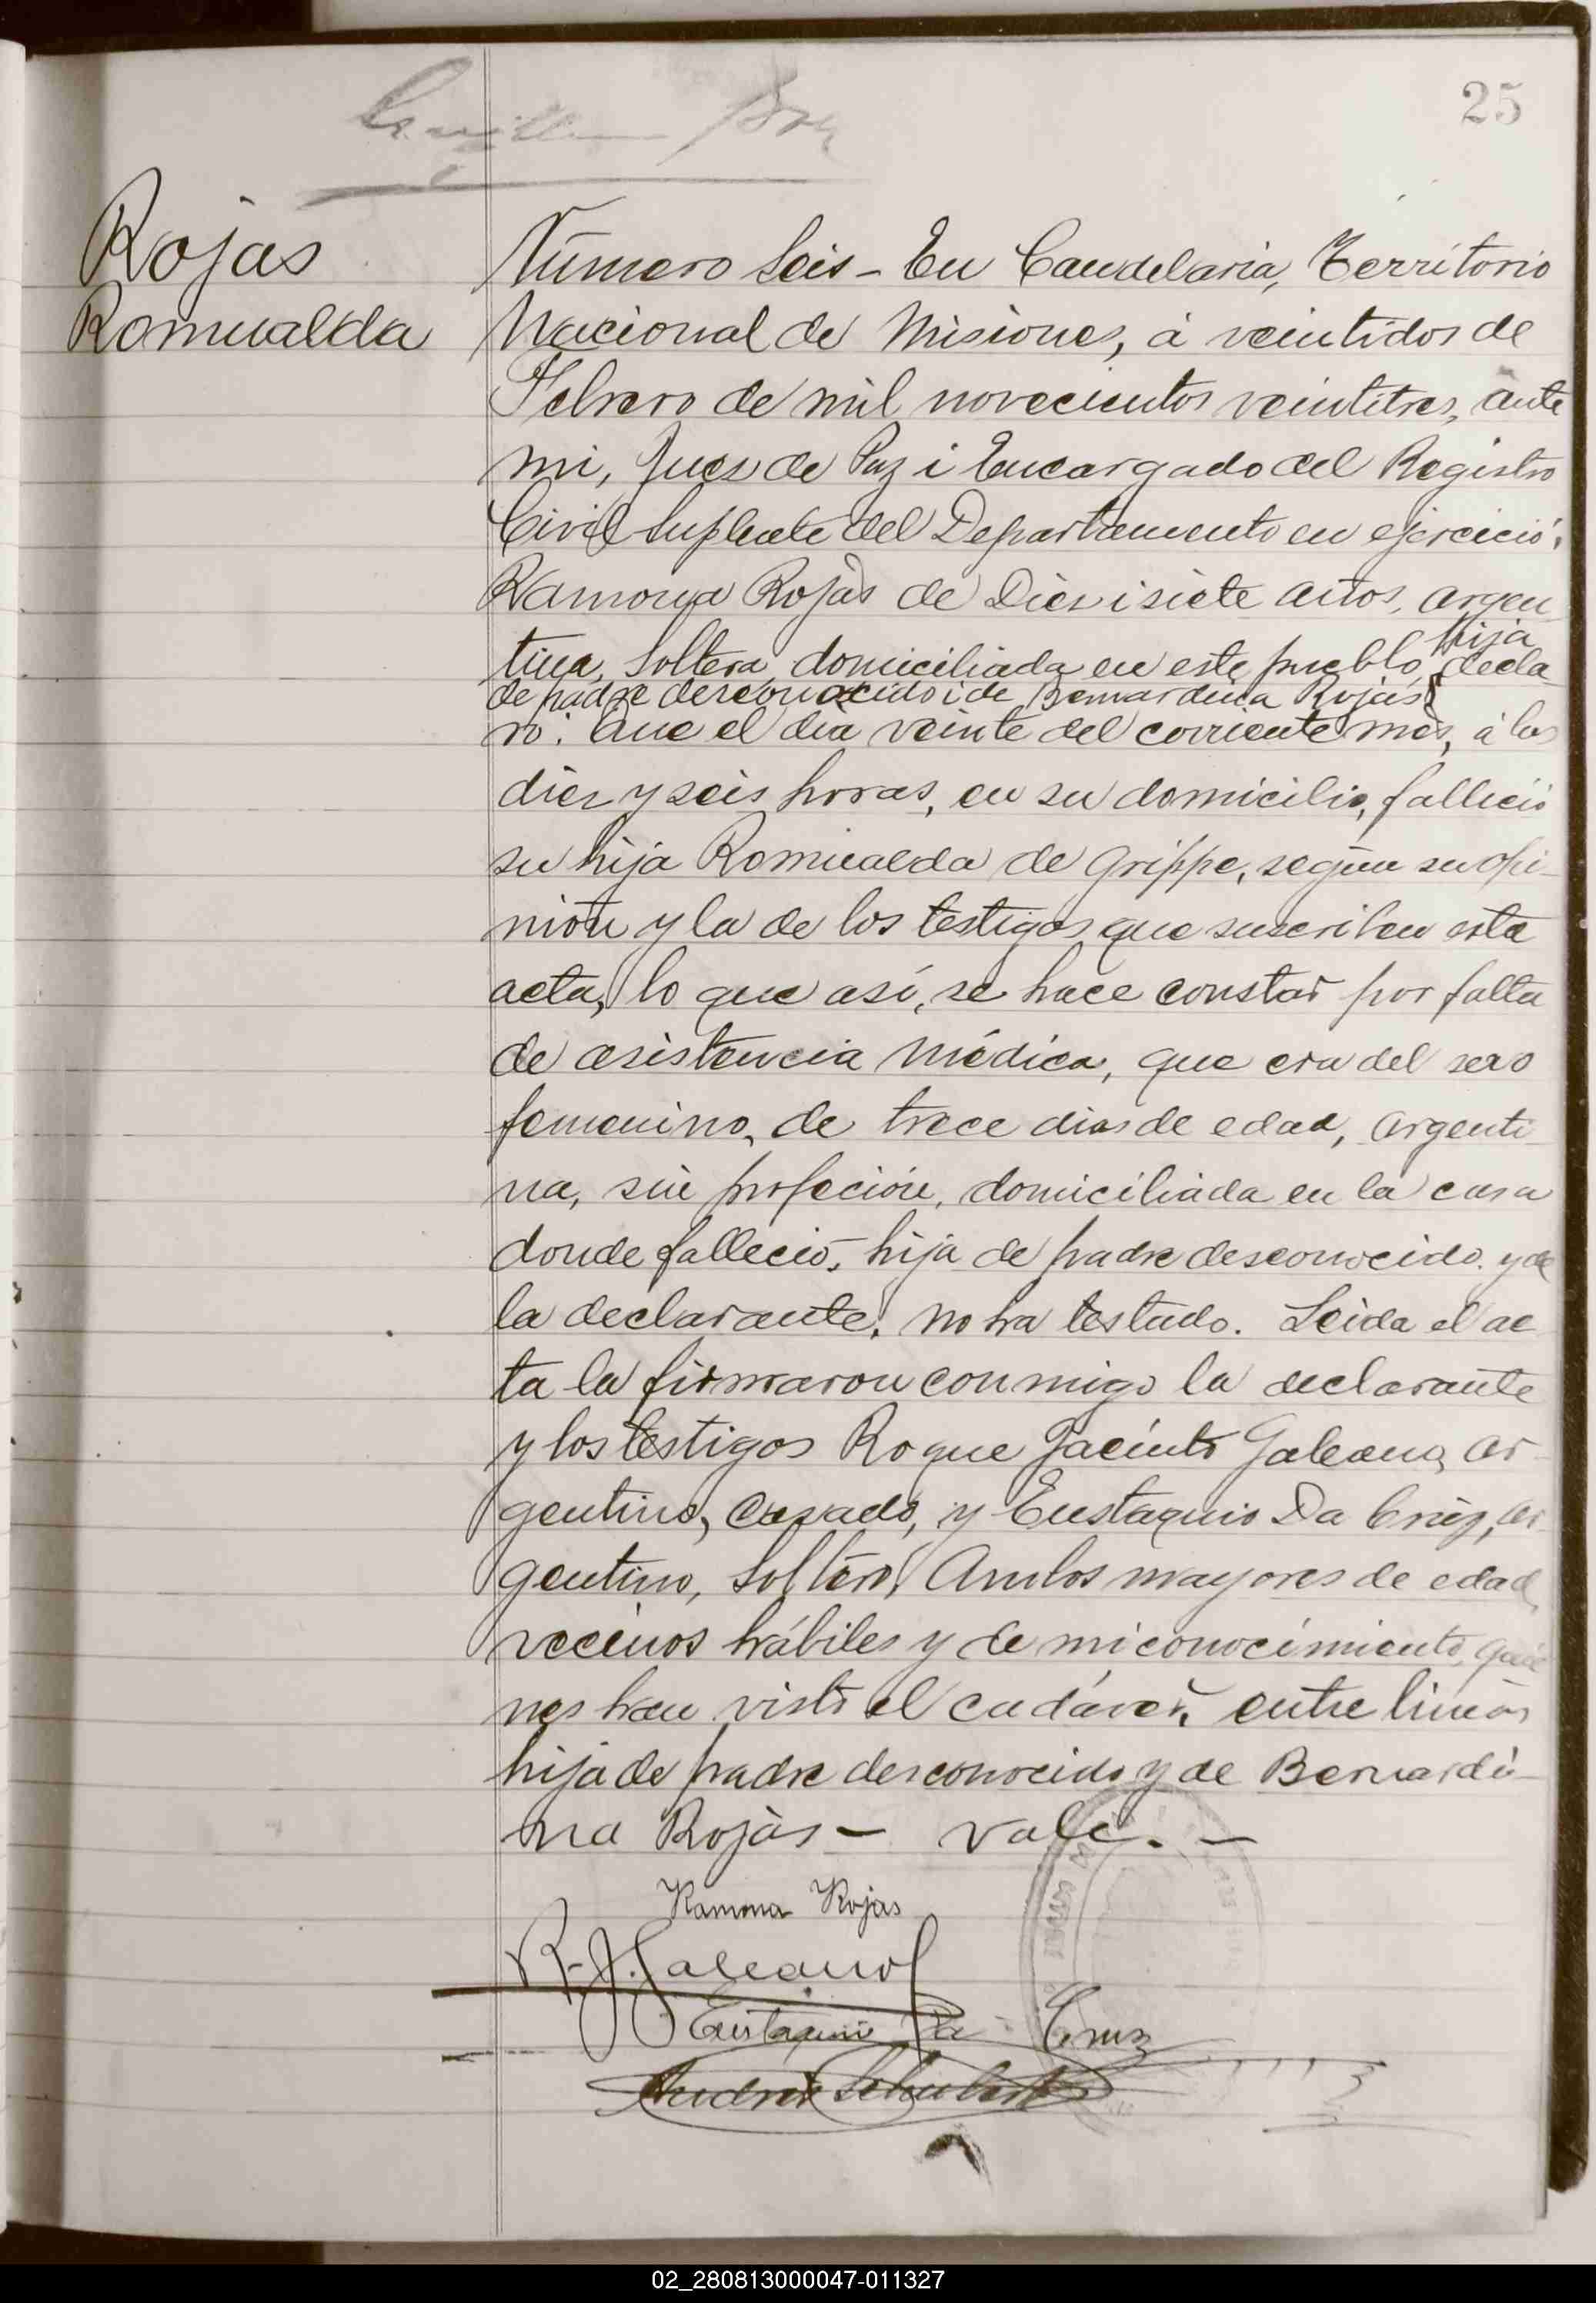 25
Rojas
Romualda
Número Seis - En Candelaria, Territorio
Nacional de Misiones, á veintidos de
Febrero de mil novecientos veintitres, ante
mi, Juez de Paz i Encargado del Registro
Civil Suplente del Departamento en ejercicio,
Ramona Rojas de Diez i siete años, argen
tina, Soltera, domiciliada en este pueblo, hija decla
de padre desconocido i de Bernardina Rojas
ró: Que el dia veinte del corriente mes, á las
diez y seis horas, en su domicilio, falleció
su hija Romualda de Grippe, según su opi-
nión y la de los testigos que suscriben esta
acta, lo que así, se hace constar por falta
de asistencia Médica, que era del sexo
femenino, de trece dias de edad, argenti
na, sin profeción, domiciliada en la casa
donde falleció, hija de padre desconocido. y de
la declarante. No ha testado. Leida el ac
ta la firmaron conmigo la declarante
y los testigos Roque Jacinto Galeano, ar
gentino, Casado, y Eustaquio Da Cruz, ar
gentino, Soltero, Ambos mayores de edad,
vecinos hábiles y de mi conocimiento, quie
nes han visto el cadáver, entre lineas
hija de padre desconocido y de Bernardi-
na Rojas - vale. -
Ramona Rojas
R. J. Galeano
Eustaquio Da Cruz
02_280813000047-011327